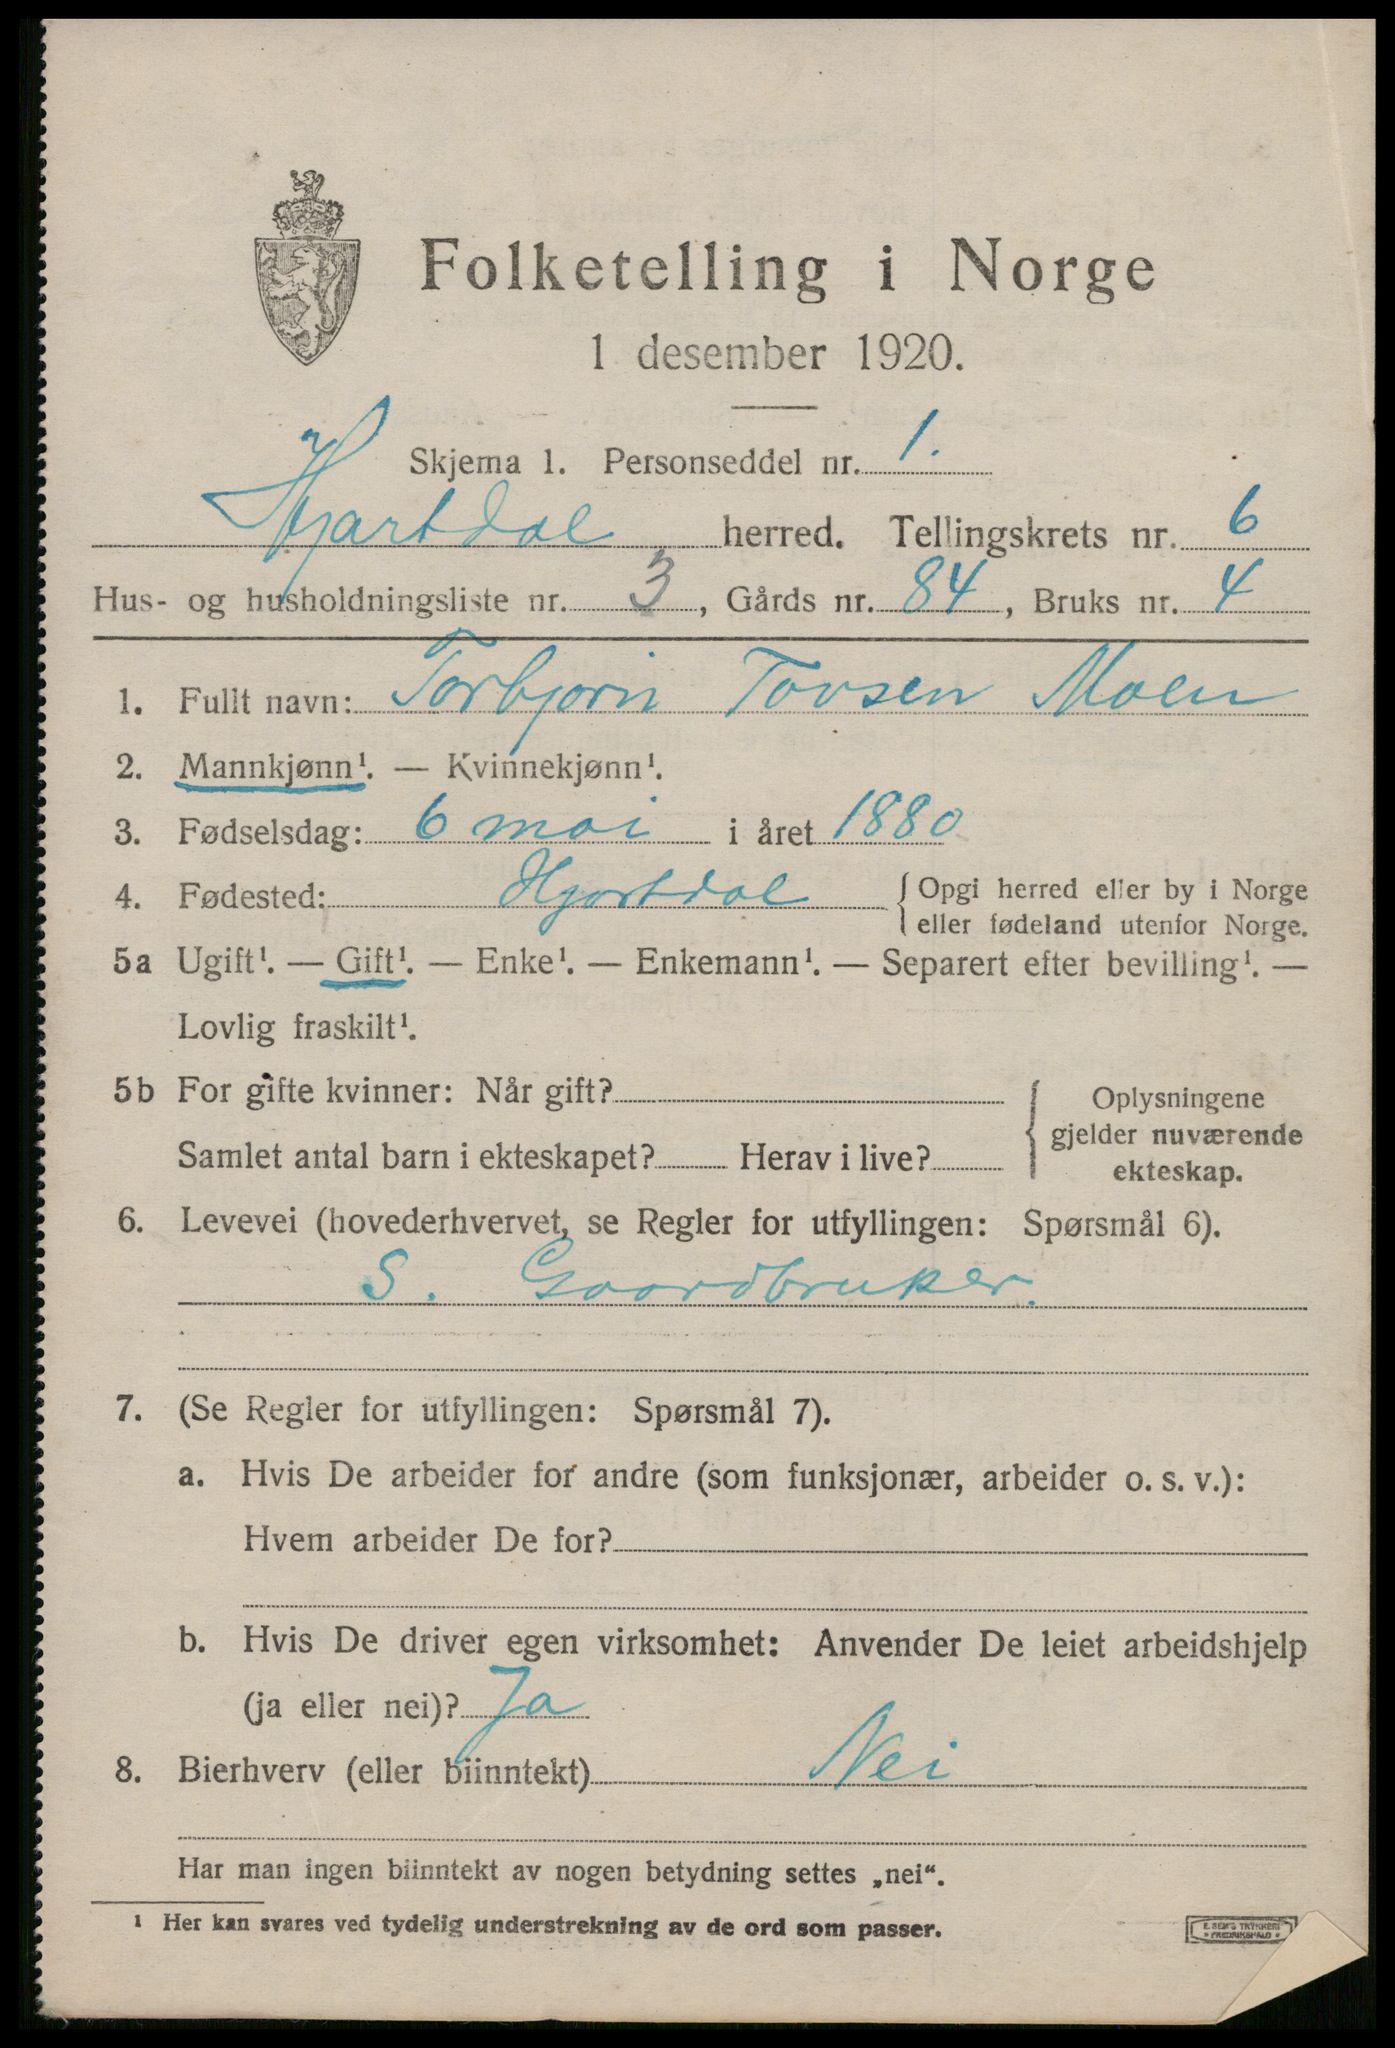 Folketelling i Norge
1 desember 1920.
Skjema 1. Personseddel nr. 1.
Hjartdal herred. Tellingskrets nr. 6
Hus- og husholdningsliste nr. 3, Gårds nr. 84, Bruks nr. 4
1. Fullt navn: Torbjørn Tovsen Moen
2. Mannkjønn¹. — Kvinnekjønn¹.
3. Fødselsdag: 6 mai i året 1880
4. Fødested: Hjartdal { Opgi herred eller by i Norge
eller fødeland utenfor Norge.
5a Ugift¹. — Gift¹. — Enke¹. — Enkemann¹. — Separert efter bevilling¹. —
Lovlig fraskilt¹.
5b For gifte kvinner: Når gift?
Samlet antal barn i ekteskapet? Herav i live?
{ Oplysningene
gjelder nuværende
ekteskap.
6. Levevei (hovederhvervet, se Regler for utfyllingen: Spørsmål 6).
S. Gaardbruker.
7. (Se Regler for utfyllingen: Spørsmål 7).
a. Hvis De arbeider for andre (som funksjonær, arbeider o. s. v.):
Hvem arbeider De for?
b. Hvis De driver egen virksomhet: Anvender De leiet arbeidshjelp
(ja eller nei)? Ja
8. Bierhverv (eller biinntekt) Nei
Har man ingen biinntekt av nogen betydning settes „nei“.
¹ Her kan svares ved tydelig understrekning av de ord som passer.
E. SEM'S TRYKKERI
* FREDRIKSHALD *